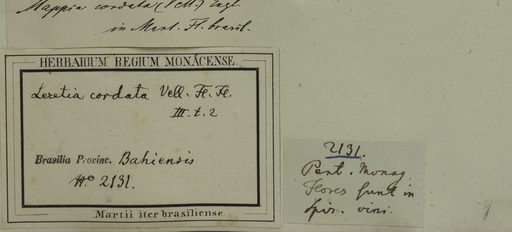 Mappia cordata (Vell.) Engl
in Mart. Fl. brasil.
HERBARIUM REGIUM MONACENSE.
Leretia cordata Vell. Fl. Fl.
III. t. 2
Brasilia Provinc. Bahiensis
No 2131.
Martii iter brasiliense.
2131.
Pent. Monog
Flores sunt in
Spir. vini.